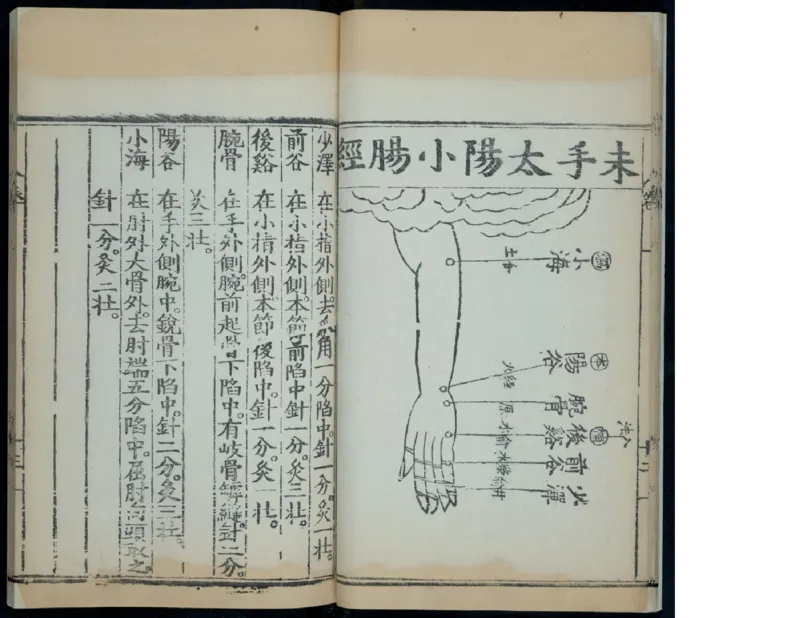 未手太陽小腸經
小海
土合
陽谷
火経
腕骨
原
後谿
木俞
前谷
少澤
少澤 在小指外側去爪角一分陷中。針一分。灸一壮。
前谷 在小指外側。本節前陷中針一分。灸三壮。
後谿 在小指外側本節後陷中。針一分。灸一壮。
腕骨 在手外側。腕前起骨下陷中。有岐骨罅縫針二分。
灸三壮。
陽谷 在手外側腕中。銳骨下陷中。針二分。灸三壮。
小海 在肘外大骨外。去肘端五分陷中。屈肘向頭取之
針一分。灸二壮。